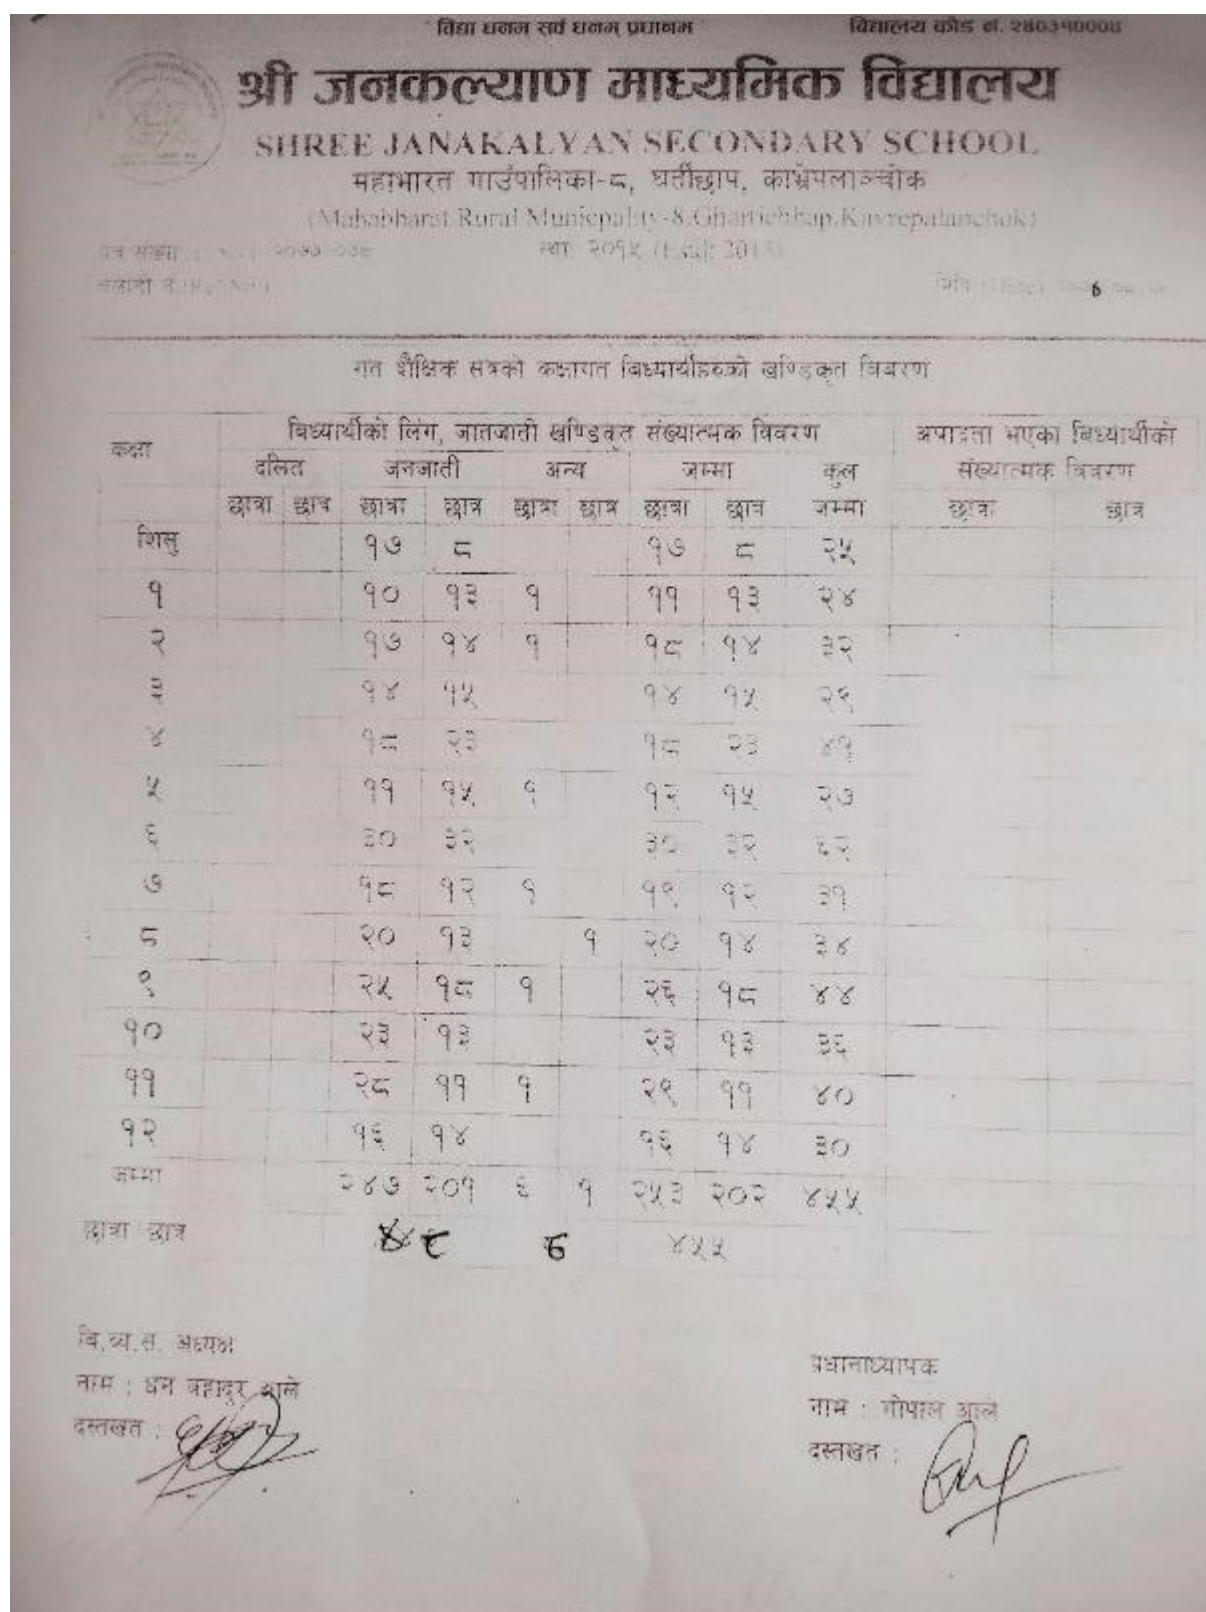 विद्या धनम् सर्व धनम् प्रधानम
विद्यालय कोड नं. २८०३१०००४
श्री जनकल्याण माध्यमिक विद्यालय
SHREE JANAKALYAN SECONDARY SCHOOL
महाभारत गाउँपालिका-८, घर्तीछाप, काभ्रेपलाञ्चोक
(Mahabharat Rural Municpality-8,Ghartichhap,Kavrepalanchok)
पत्र संख्या :
स्था. २०१५
मिति
गत शैक्षिक सत्रको कक्षागत बिध्यार्थीहरुको खण्डिकृत विबरण
कक्षा बिध्यार्थीको लिंग, जातजाती खण्डिकृत संख्यात्मक विवरण अपाङता भएका बिध्यार्थीको
दलित जनजाती अन्य जम्मा कुल संख्यात्मक विबरण
छात्रा छात्र छात्रा छात्र छात्रा छात्र छात्रा छात्र जम्मा छात्रा छात्र
शिसु १७ ८ १७ ८ २५
१ १० १३ १ ११ १३ २४
२ १७ १४ १ १८ १४ ३२
३ १४ १५ १४ १५ २९
४ १८ २३ १८ २३ ४१
५ ११ १५ १ १२ १५ २७
६ ३० ३२ ३० ३२ ६२
७ १८ १२ १ १९ १२ ३१
८ २० १३ १ २० १४ ३४
९ २५ १८ १ २६ १८ ४४
१० २३ १३ २३ १३ ३६
११ २८ ११ १ २९ ११ ४०
१२ १६ १४ १६ १४ ३०
जम्मा २४७ २०१ ६ १ २५३ २०२ ४५५
छात्रा छात्र ४५५
बि.व्य.स. अध्यक्ष
नाम : धन बहादुर आले
दस्तखत :
प्रधानाध्यापक
नाम : गोपाल आले
दस्तखत :